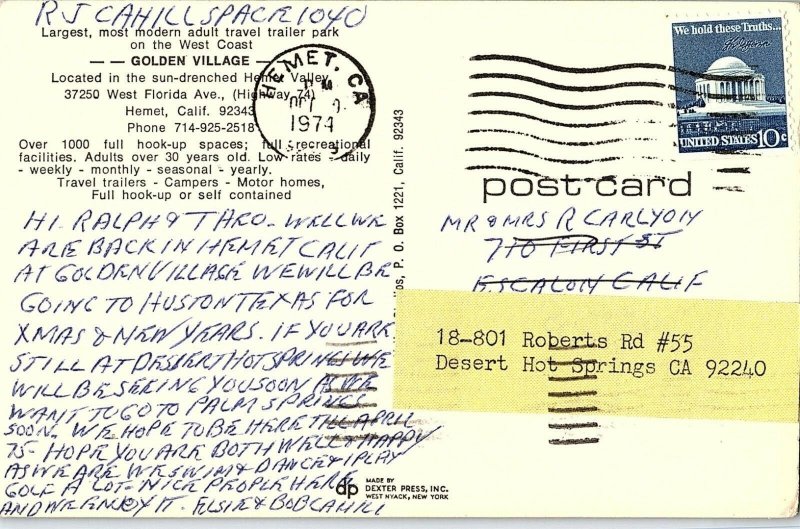 RJ CAHILL SPACE 1040
Largest, most modern adult travel trailer park
on the West Coast
— — GOLDEN VILLAGE — —
Located in the sun-drenched Hemet Valley
37250 West Florida Ave., (Highway 74)
Hemet, Calif. 92343
Phone 714-925-2518
Over 1000 full hook-up spaces; full recreational
facilities. Adults over 30 years old. Low rates - daily
- weekly - monthly - seasonal - yearly.
Travel trailers - Campers - Motor homes,
Full hook-up or self contained
HI. RALPH & THEO. WELL WE
ARE BACK IN HEMET CALIF
AT GOLDEN VILLAGE WE WILL BE
GOING TO HUSTON TEXAS FOR
XMAS & NEW YEARS. IF YOU ARE
STILL AT DESERT HOT SPRING WE
WILL BE SEEING YOU SOON AS WE
WANT TO GO TO PALM SPRINGS
SOON. WE HOPE TO BE HERE TILL APRIL
75 - HOPE YOU ARE BOTH WELL & HAPPY
AS WE ARE WE SWIM & DANCE & I PLAY
GOLF A LOT - NICE PEOPLE HERE
AND WE ENJOY IT. ELSIE & BOB CAHILL
HEMET, CA
PM
1974
P. O. Box 1221, Calif. 92343
We hold these Truths...
UNITED STATES 10c
post card
MR & MRS R CARLYON
710 FIRST ST
ESCALON CALIF
18-801 Roberts Rd #55
Desert Hot Springs CA 92240
dp
MADE BY
DEXTER PRESS, INC.
WEST NYACK, NEW YORK